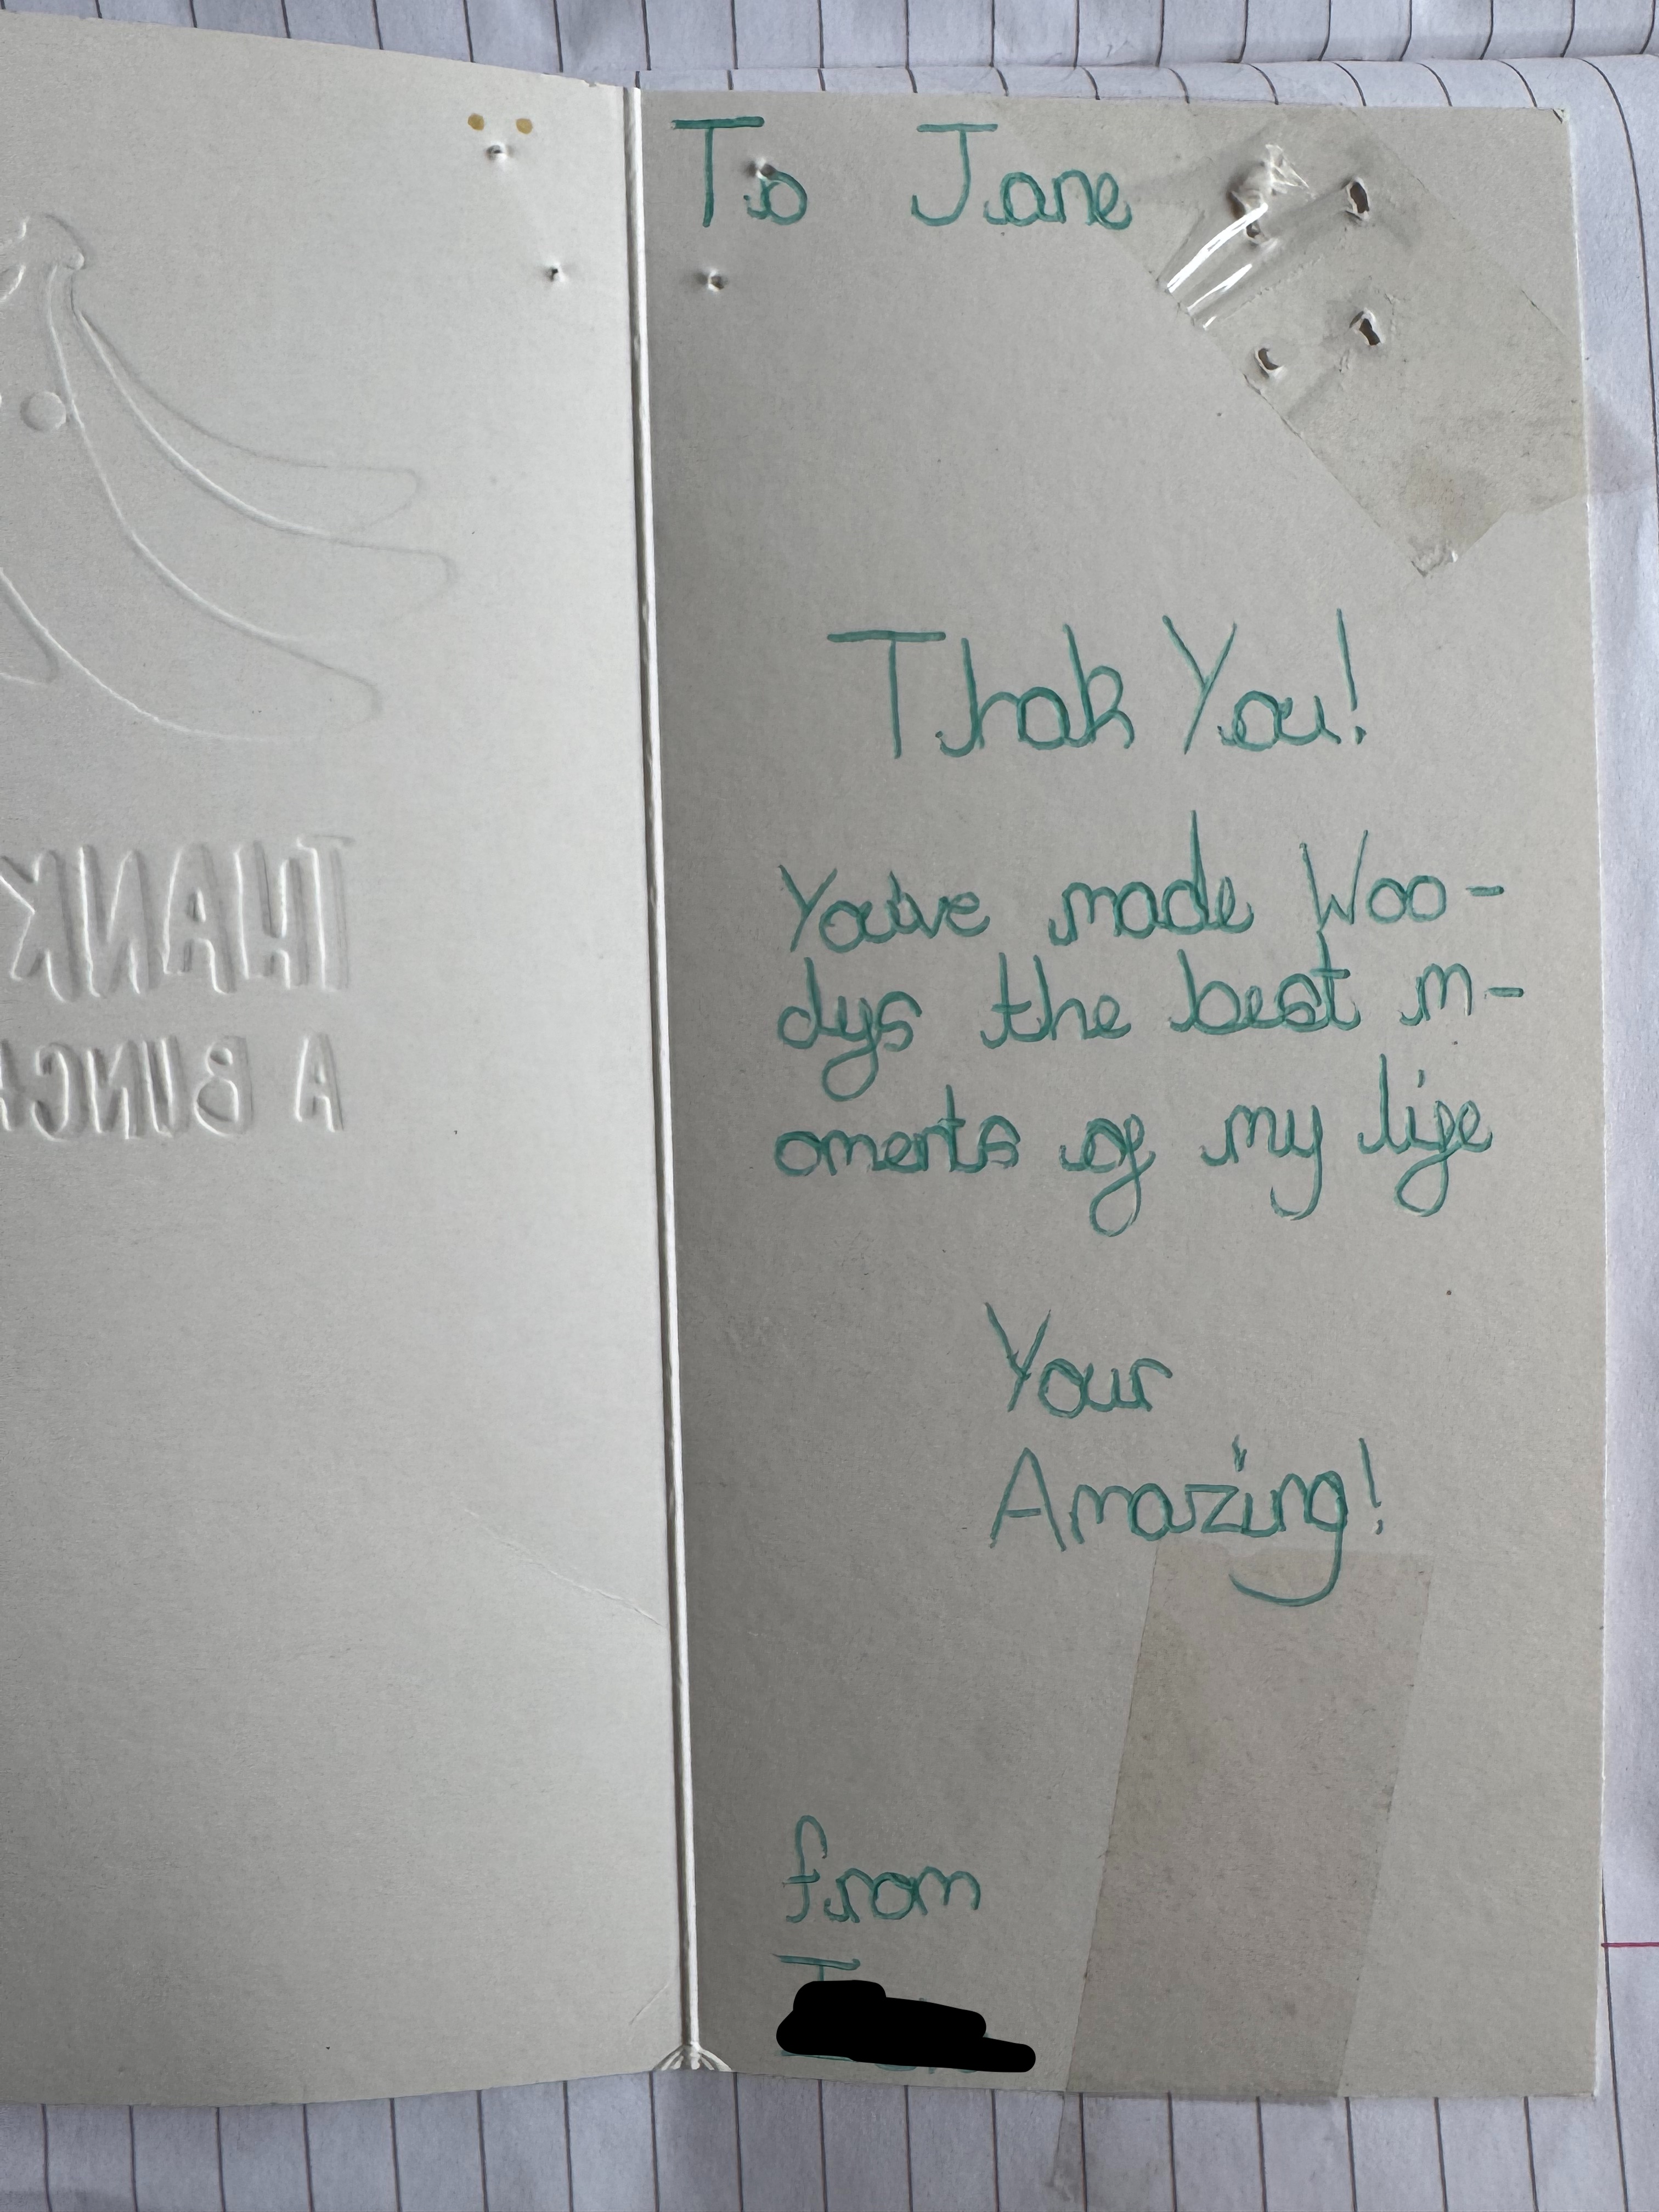 THANK
A BUNCH
To Jane
Thak You!
You've made Woo-
dys the best m-
oments of my life
Your
Amazing!
from